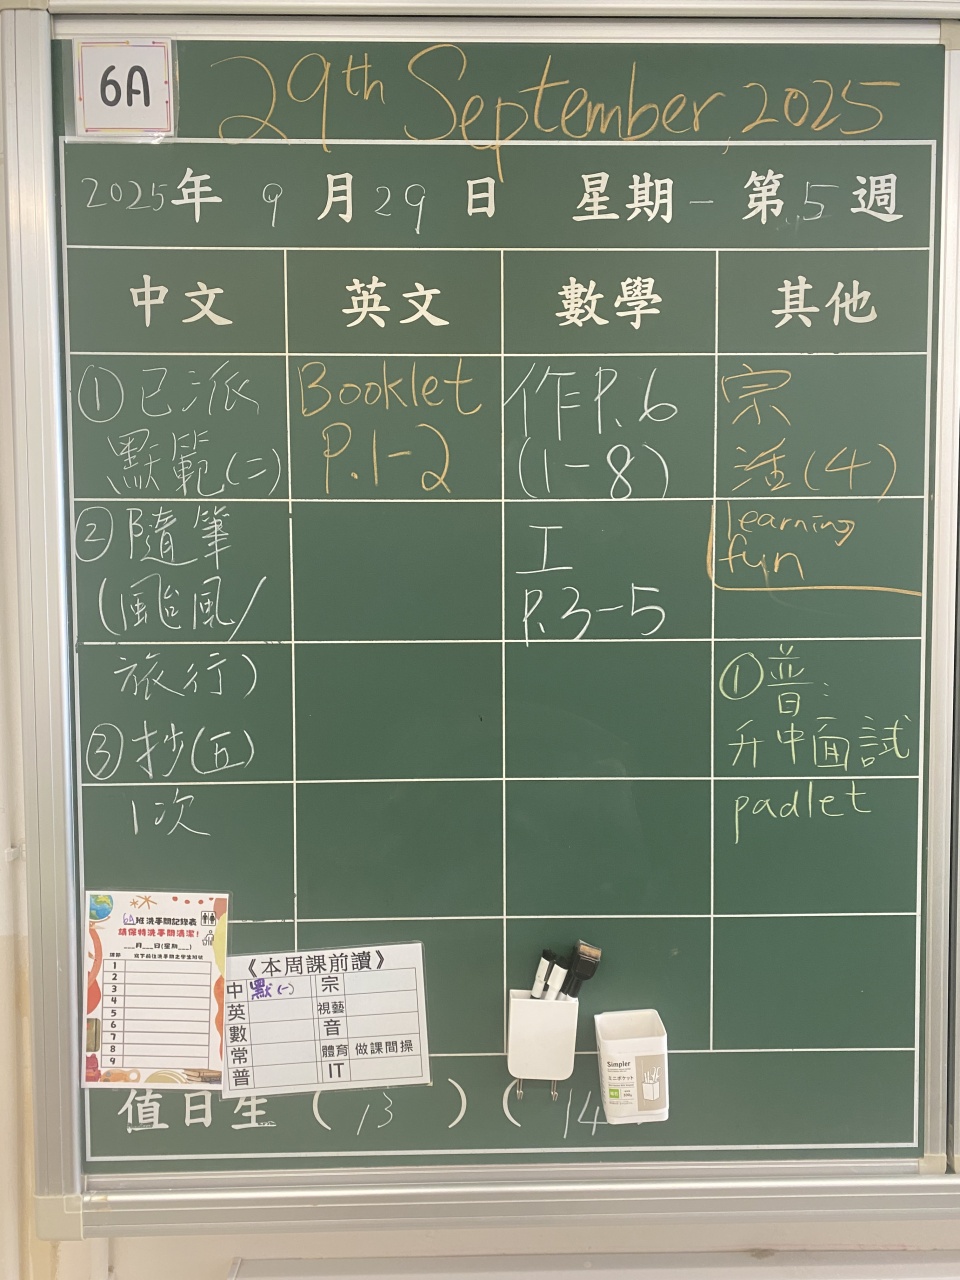 6A
29th September, 2025
2025年 9月29日 星期一 第5週
中文 英文 數學 其他
①已派
默範(二)
②隨筆
(颱風/
旅行)
③抄(五)
1次
Booklet
P.1-2
作P.6
(1-8)
工
P.3-5
宗
活(4)
learning
fun
①普:
升中面試
padlet
6A班洗手間記錄表
請保持洗手間清潔!
___月___日(星期___)
課節 寫下前往洗手間之學生班號
1
2
3
4
5
6
7
8
9
《本周課前讀》
中 默(一) 宗
英 視藝
數 音
常 體育 做課間操
普 IT
Simpler
ミニポケット
值日生 (13) (14